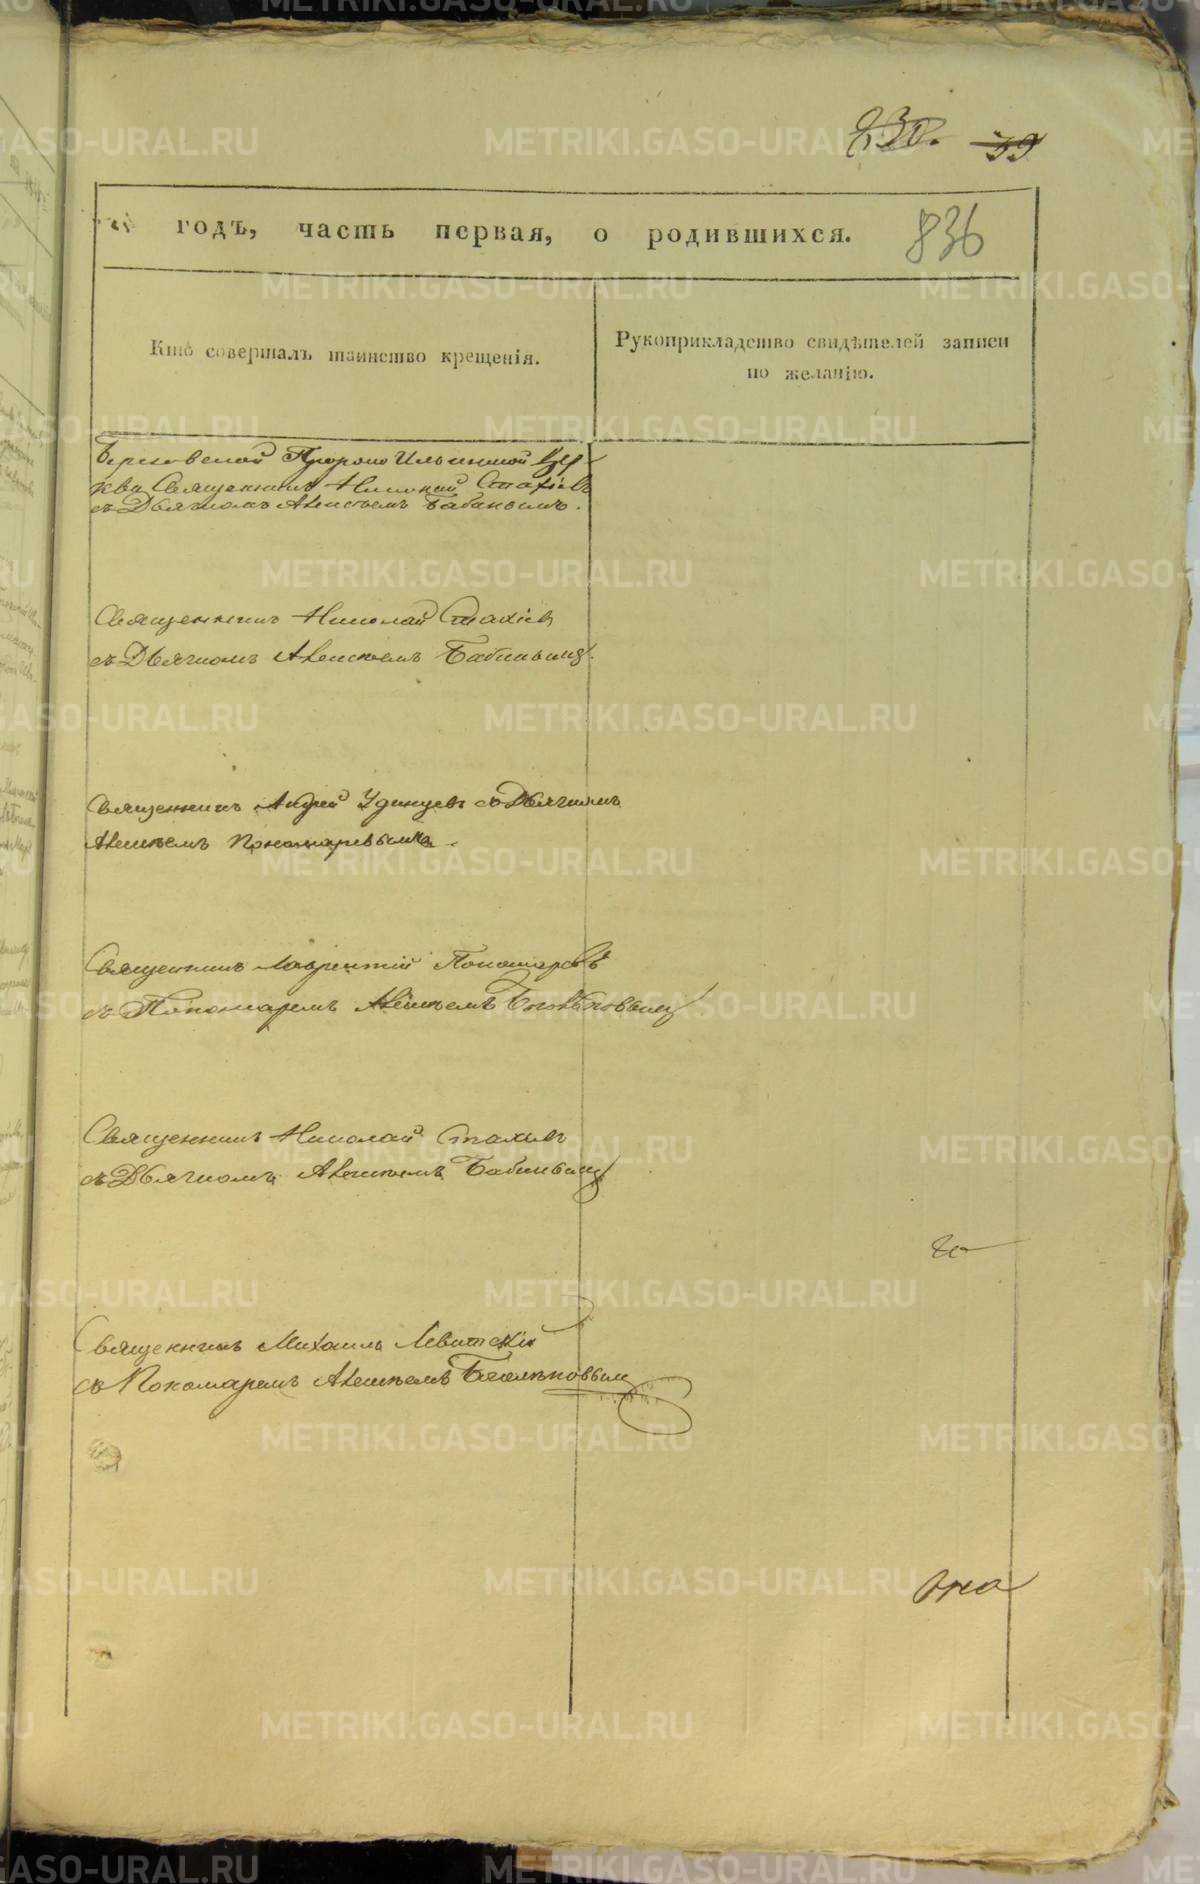 230. 39
годъ, часть первая, о родившихся. 836
Кто совершалъ таинство крещенія.
Рукоприкладство свидѣтелей записи
по желанію.
Пророко Ильинской Цер
кви Священникъ Николай Стахіевъ
съ Дьячкомъ Алексѣемъ Бабинымъ.
Священникъ Николай Стахіевъ
съ Дьячкомъ Алексѣемъ Бабинымъ.
Священникъ Андрей Удинцевъ съ Дьячкомъ
Алексѣемъ Пономаревымъ.
Священникъ Лаврентій Пономаревъ
съ Пономаремъ Алексѣемъ
Священникъ Николай Стахіевъ
съ Дьячкомъ Алексѣемъ Бабинымъ
Священникъ Михаилъ Левитскій
съ Пономаремъ Алексѣемъ
METRIKI.GASO-URAL.RU